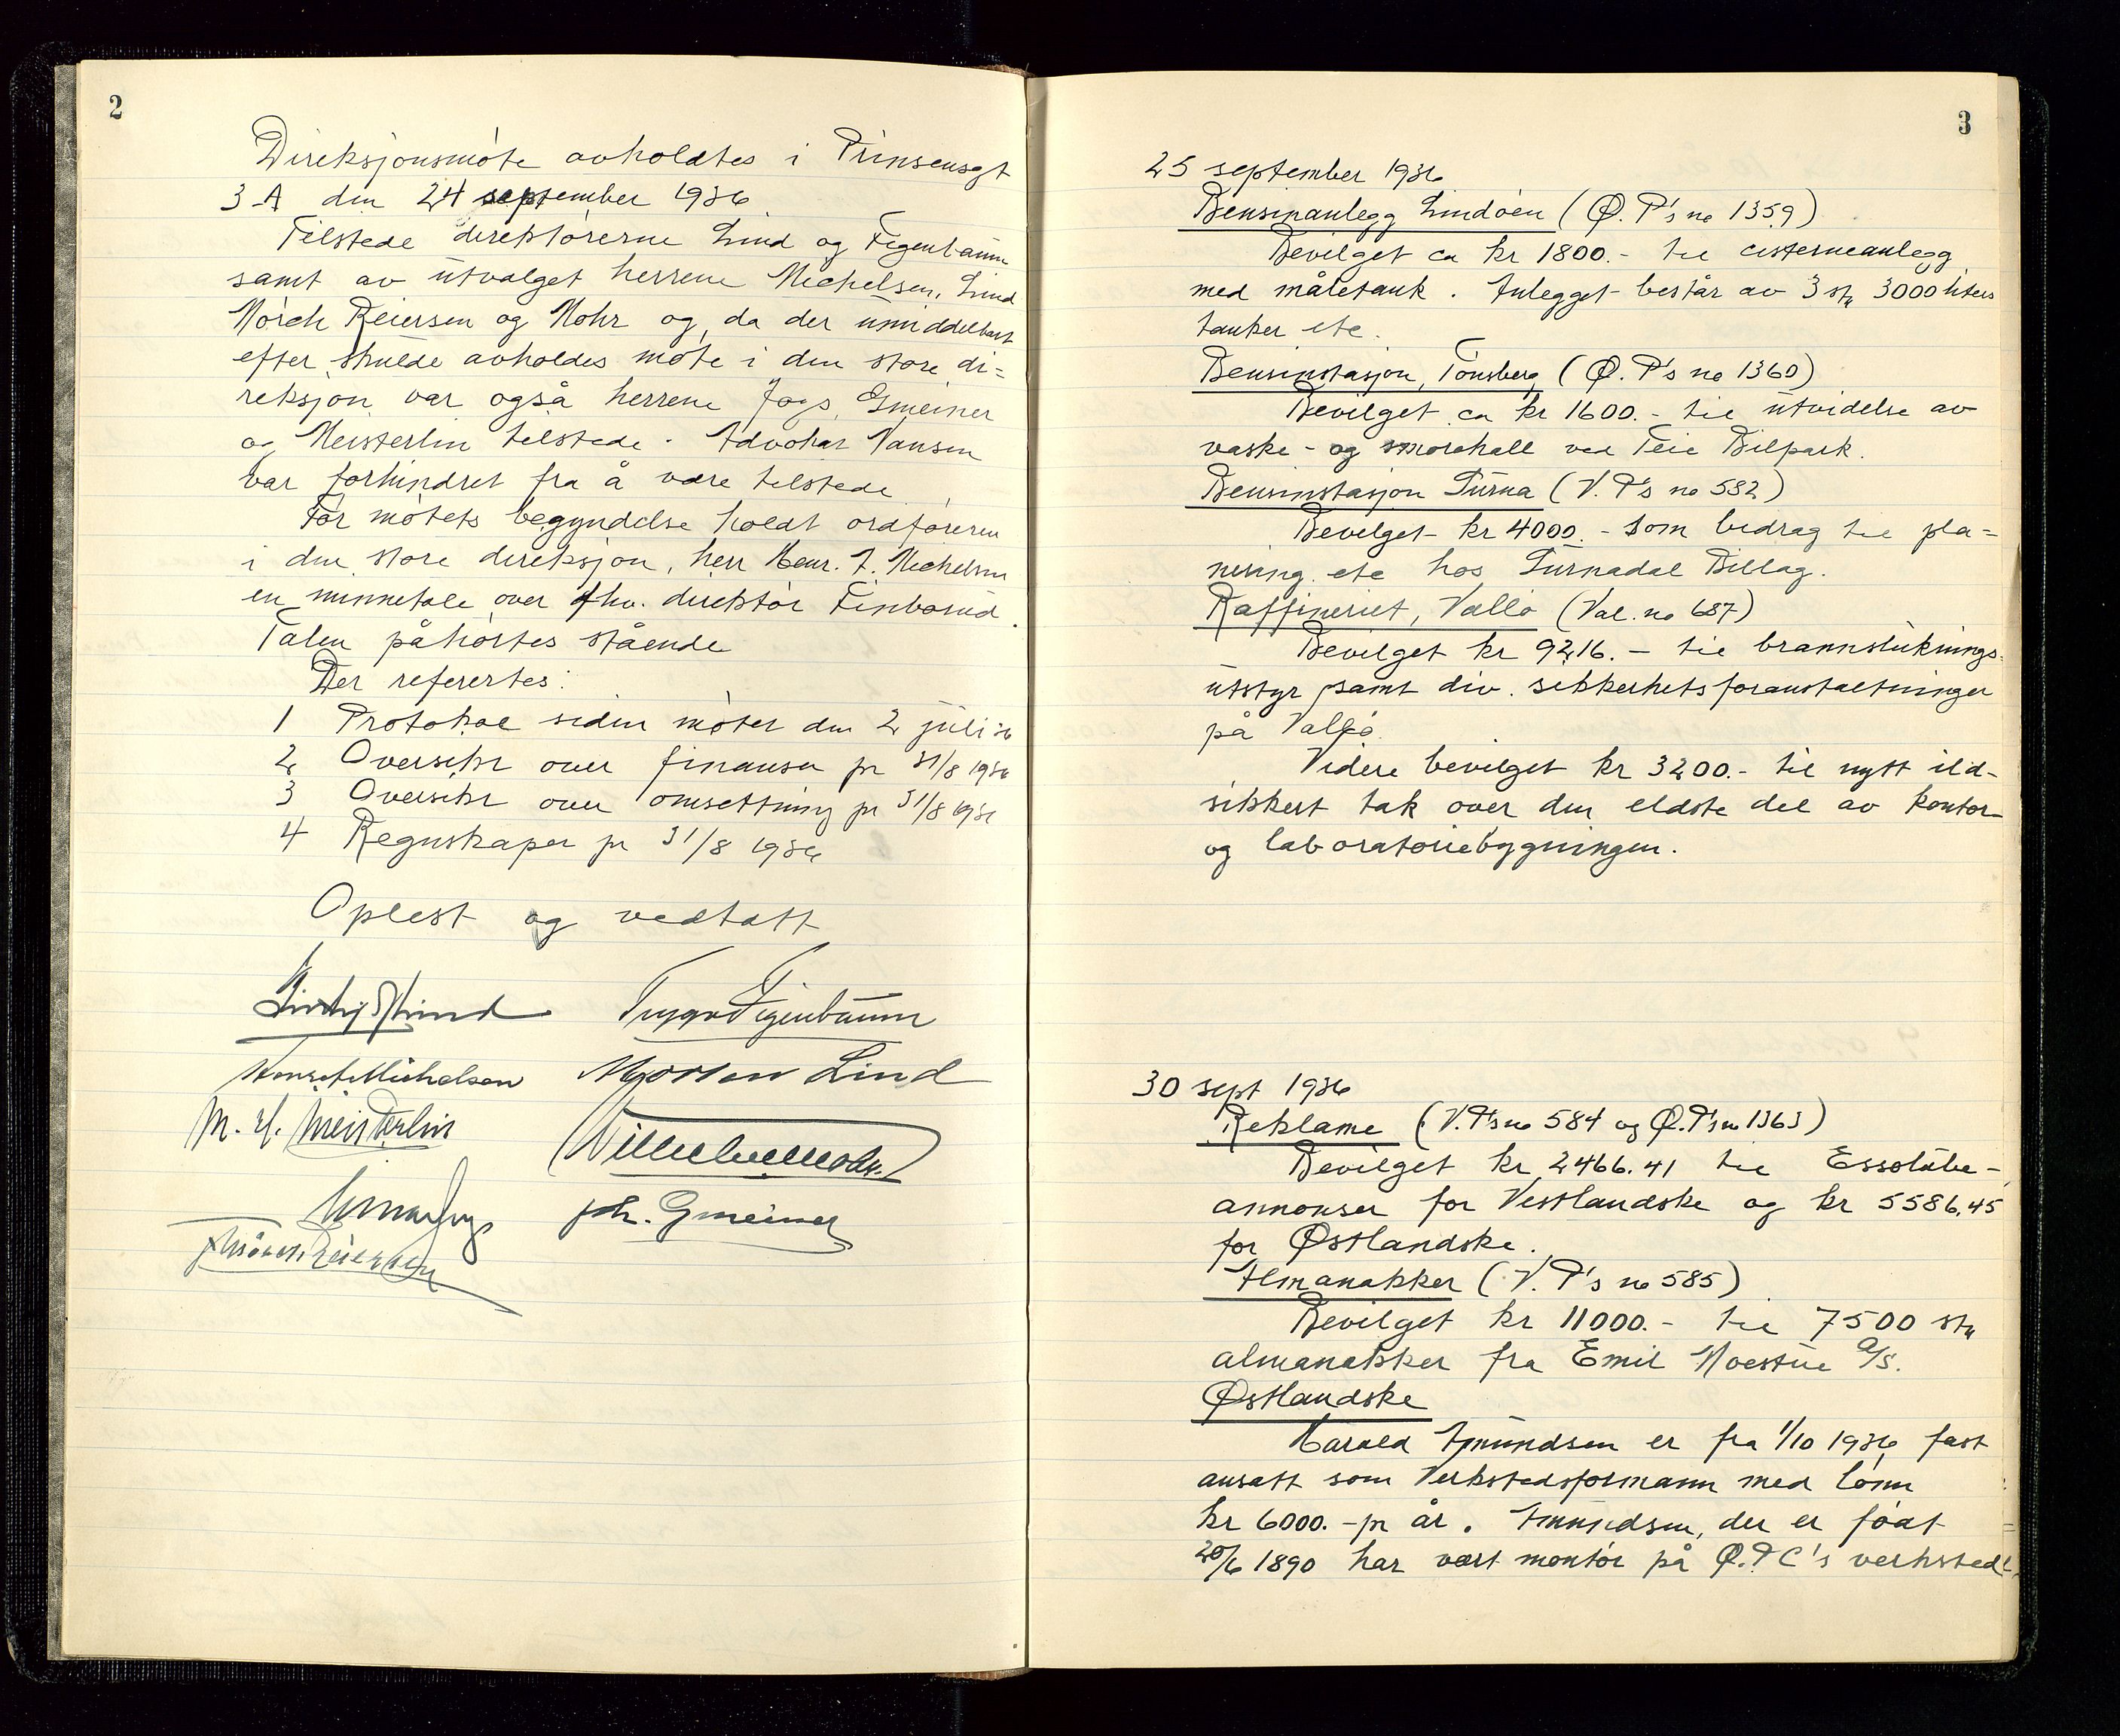 2
Direksjonsmøte avholdtes i Prinsensgt
3 A den 24 september 1936
Tilstede direktørerne Lind og Figenbaum
samt av utvalget herrene Michelsen, Lind
Mørch Reiersen og Mohr og, da der umiddelbart
efter skulde avholdes møte i den store di=
reksjon var også herrene Fogs, Gmeiner
og Meisterlin tilstede. Advokat Nansen
var forhindret fra å være tilstede
Før møtets begyndelse holdt ordføreren
i den store direksjon, herr Henr. F. Michelsen
en minnetale over fhv. direktør Finborud.
Talen påhørtes stående
Der refertes:
1 Protokol siden møtet den 2 juli 36
2 Oversikt over finanser pr 31/8 1936
3 Oversikt over omsettning pr 31/8 1936
4 Regnskaper pr 31/8 1936
Oplest og vedtatt
Lind Figenbaum
Michelsen Morten Lind
M. H. Meisterlin Wilhelm Mohr
Joh. Gmeiner
Mørch Reiersen
3
25 september 1936
Bensinanlegg Lindøen (Ø. P's no 1359)
Bevilget ca kr 1800.- til cisterneanlegg
med måletank. Anlegget består av 3 stk 3000 liters
tanker etc.
Bensinstasjon, Tønsberg (Ø. P's no 1360)
Bevilget ca kr 1600.- til utvidelse av
vaske- og smørehall ved Teie Bilpark.
Bensinstasjon Surna (V. P's no 582)
Bevilget kr 4000.- som bidrag til pla=
nering etc hos Surnadal Billag.
Raffineriet, Vallø (Val. no 687)
Bevilget kr 9216.- til brannsluknings-
utstyr samt div. sikkerhetsforanstaltninger
på Vallø.
Videre bevilget kr 3200.- til nytt ild-
sikkert tak over den eldste del av kontor-
og laboratoriebygningen.
30 sept 1936
Reklame (V. P's no 584 og Ø. P's no 1363)
Bevilget kr 2466.41 til Essolube-
annonser for Vestlandske og kr 5586.45
for Østlandske.
Almanakker (V. P's no 585)
Bevilget kr 11000.- til 7500 stk
almanakker fra Emil Moestue A/S.
Østlandske
Harald Amundsen er fra 1/10 1936 fast
ansatt som Verkstedsformann med lønn
kr 6000.- pr år. Amundsen, der er født
20/6 1890 har vært montør på Ø.P.C's verksted